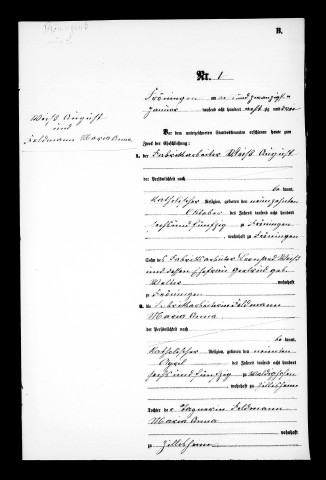 B.
Nr. 1
Fröningen am ein und zwanzigsten
Januar tausend acht hundert
Weiss August
und
Feldmann Maria Anna
Vor dem unterzeichneten Standesbeamten erschienen heute zum
Zweck der Eheschließung:
1. der Fabrikarbeiter Weiss August
der Persönlichkeit nach
be kannt,
katholischer Religion, geboren den neunzehnten
Oktober des Jahres tausend acht hundert
sechs und fünfzig zu Fröningen
, wohnhaft zu Fröningen
Sohn des Fabrikarbeiter Leonhard Weiss
und dessen Ehefrau Gertrud geb.
wohnhaft
zu Fröningen
2. die Fabrikarbeiterin Feldmann
Maria Anna
der Persönlichkeit nach
be kannt,
katholischer Religion, geboren den neunten
April des Jahres tausend acht hundert
sechs und fünfzig zu
, wohnhaft zu
Zillisheim
Tochter der Feldmann
Maria Anna
wohnhaft
zu Zillisheim